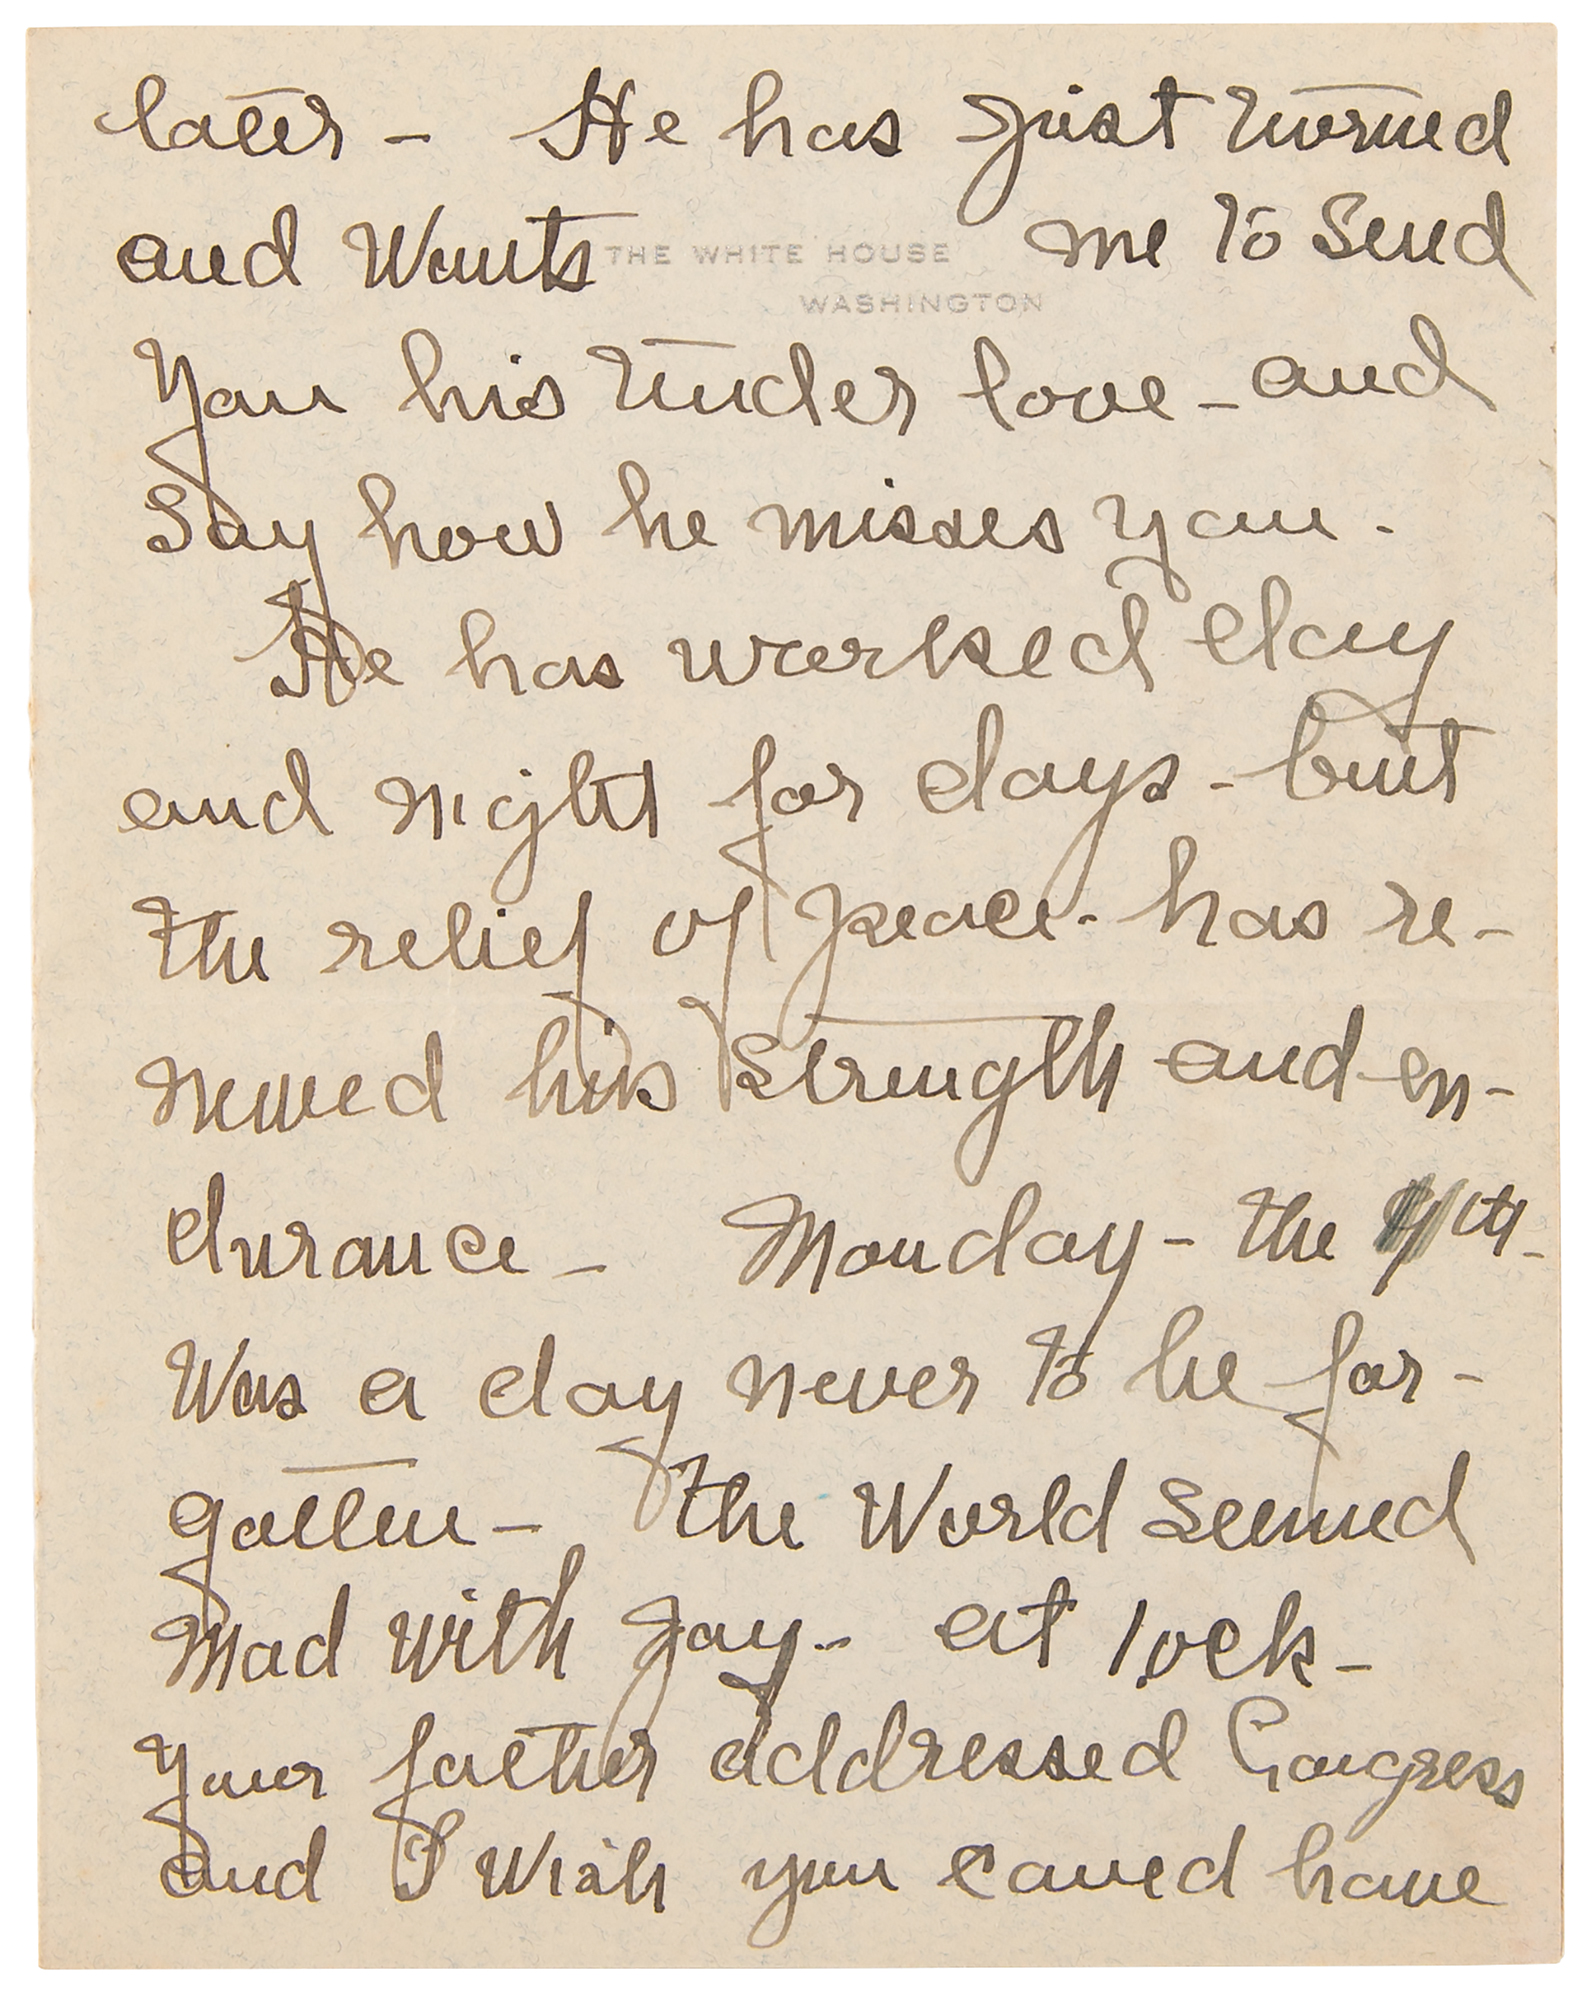 later - He has just turned
and wants THE WHITE HOUSE me to send
WASHINGTON
you his tender love - and
say how he misses you.
He has worked day
and night for days - but
the relief of peace - has re-
newed his strength and en-
durance - Monday - the 11th -
was a day never to be for-
gotten - the World seemed
mad with joy - at 1, ock -
your father addressed Congress
and I wish you could have